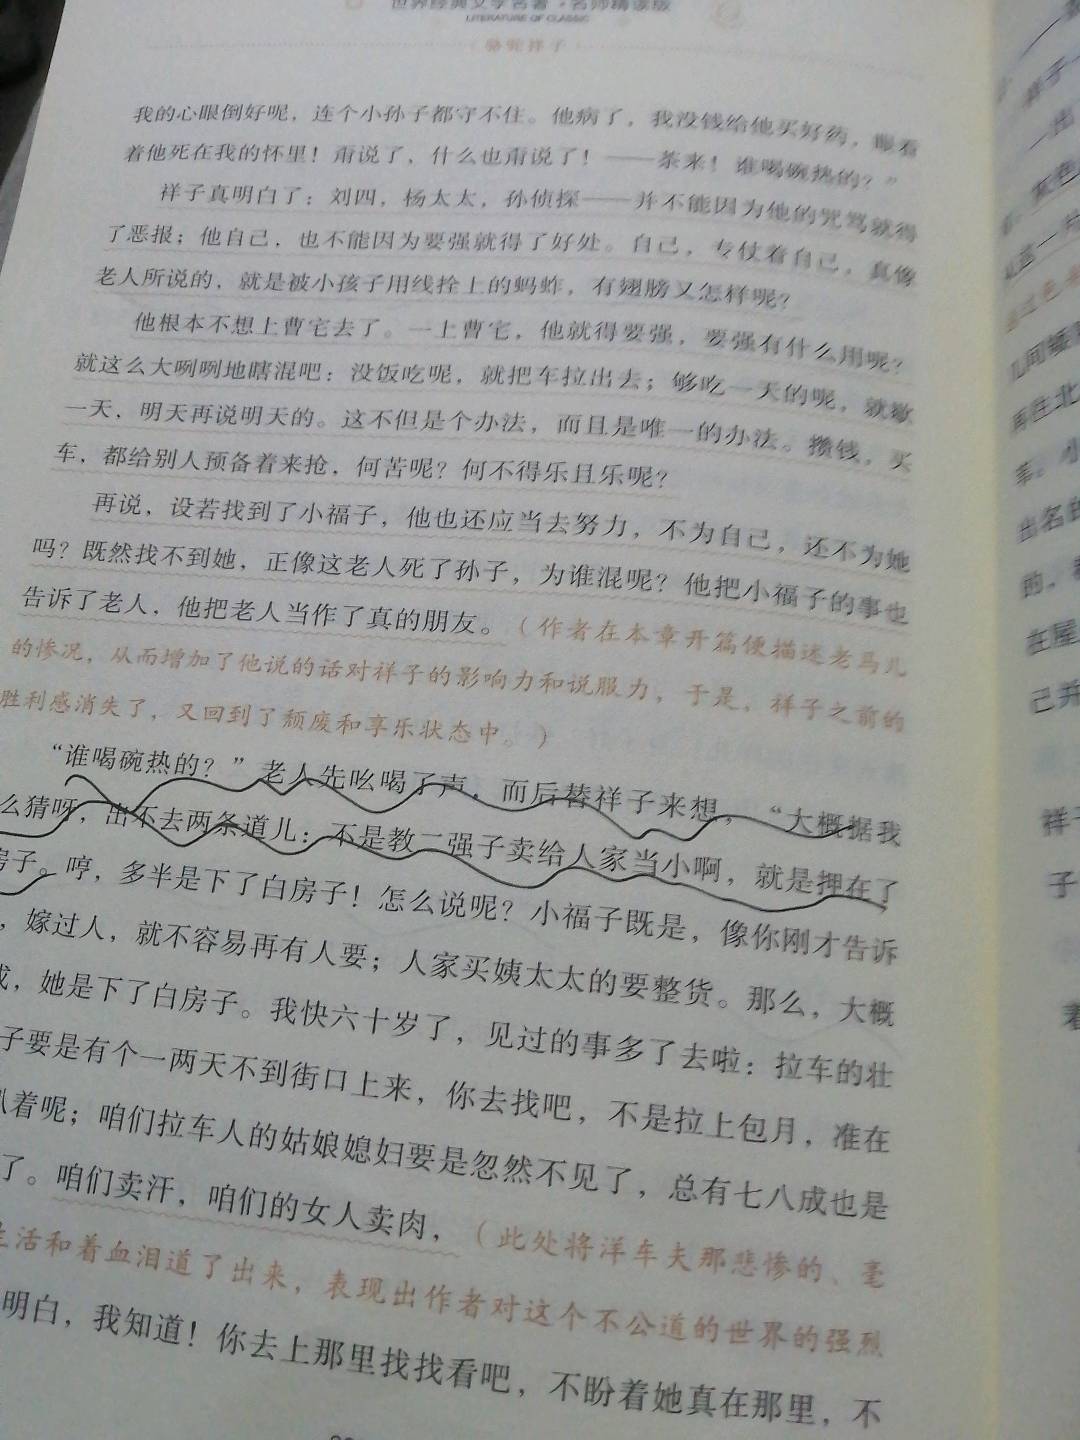 世界经典文学名著·名师精读版
LITERATURE OF CLASSIC
骆驼祥子
我的心眼倒好呢，连个小孙子都守不住。他病了，我没钱给他买好药，眼看
着他死在我的怀里！甭说了，什么也甭说了！——茶来！谁喝碗热的？”
祥子真明白了：刘四，杨太太，孙侦探——并不能因为他的咒骂就得
了恶报；他自己，也不能因为要强就得了好处。自己，专仗着自己，真像
老人所说的，就是被小孩子用线拴上的蚂蚱，有翅膀又怎样呢？
他根本不想上曹宅去了。一上曹宅，他就得要强，要强有什么用呢？
就这么大咧咧地瞎混吧：没饭吃呢，就把车拉出去；够吃一天的呢，就歇
一天，明天再说明天的。这不但是个办法，而且是唯一的办法。攒钱，买
车，都给别人预备着来抢，何苦呢？何不得乐且乐呢？
再说，设若找到了小福子，他也还应当去努力，不为自己，还不为她
吗？既然找不到她，正像这老人死了孙子，为谁混呢？他把小福子的事也
告诉了老人，他把老人当作了真的朋友。（作者在本章开篇便描述老马儿
的惨况，从而增加了他说的话对祥子的影响力和说服力，于是，祥子之前的
胜利感消失了，又回到了颓废和享乐状态中。）
“谁喝碗热的？”老人先吆喝了声，而后替祥子来想，“大概据我
么猜呀，出不去两条道儿：不是教二强子卖给人家当小啊，就是押在了
房子。哼，多半是下了白房子！怎么说呢？小福子既是，像你刚才告诉
，嫁过人，就不容易再有人要；人家买姨太太的要整货。那么，大概
成，她是下了白房子。我快六十岁了，见过的事多了去啦：拉车的壮
子要是有个一两天不到街口上来，你去找吧，不是拉上包月，准在
趴着呢；咱们拉车人的姑娘媳妇要是忽然不见了，总有七八成也是
了。咱们卖汗，咱们的女人卖肉，（此处将洋车夫那悲惨的、毫
生活和着血泪道了出来，表现出作者对这个不公道的世界的强烈
明白，我知道！你去上那里找找看吧，不盼着她真在那里，不